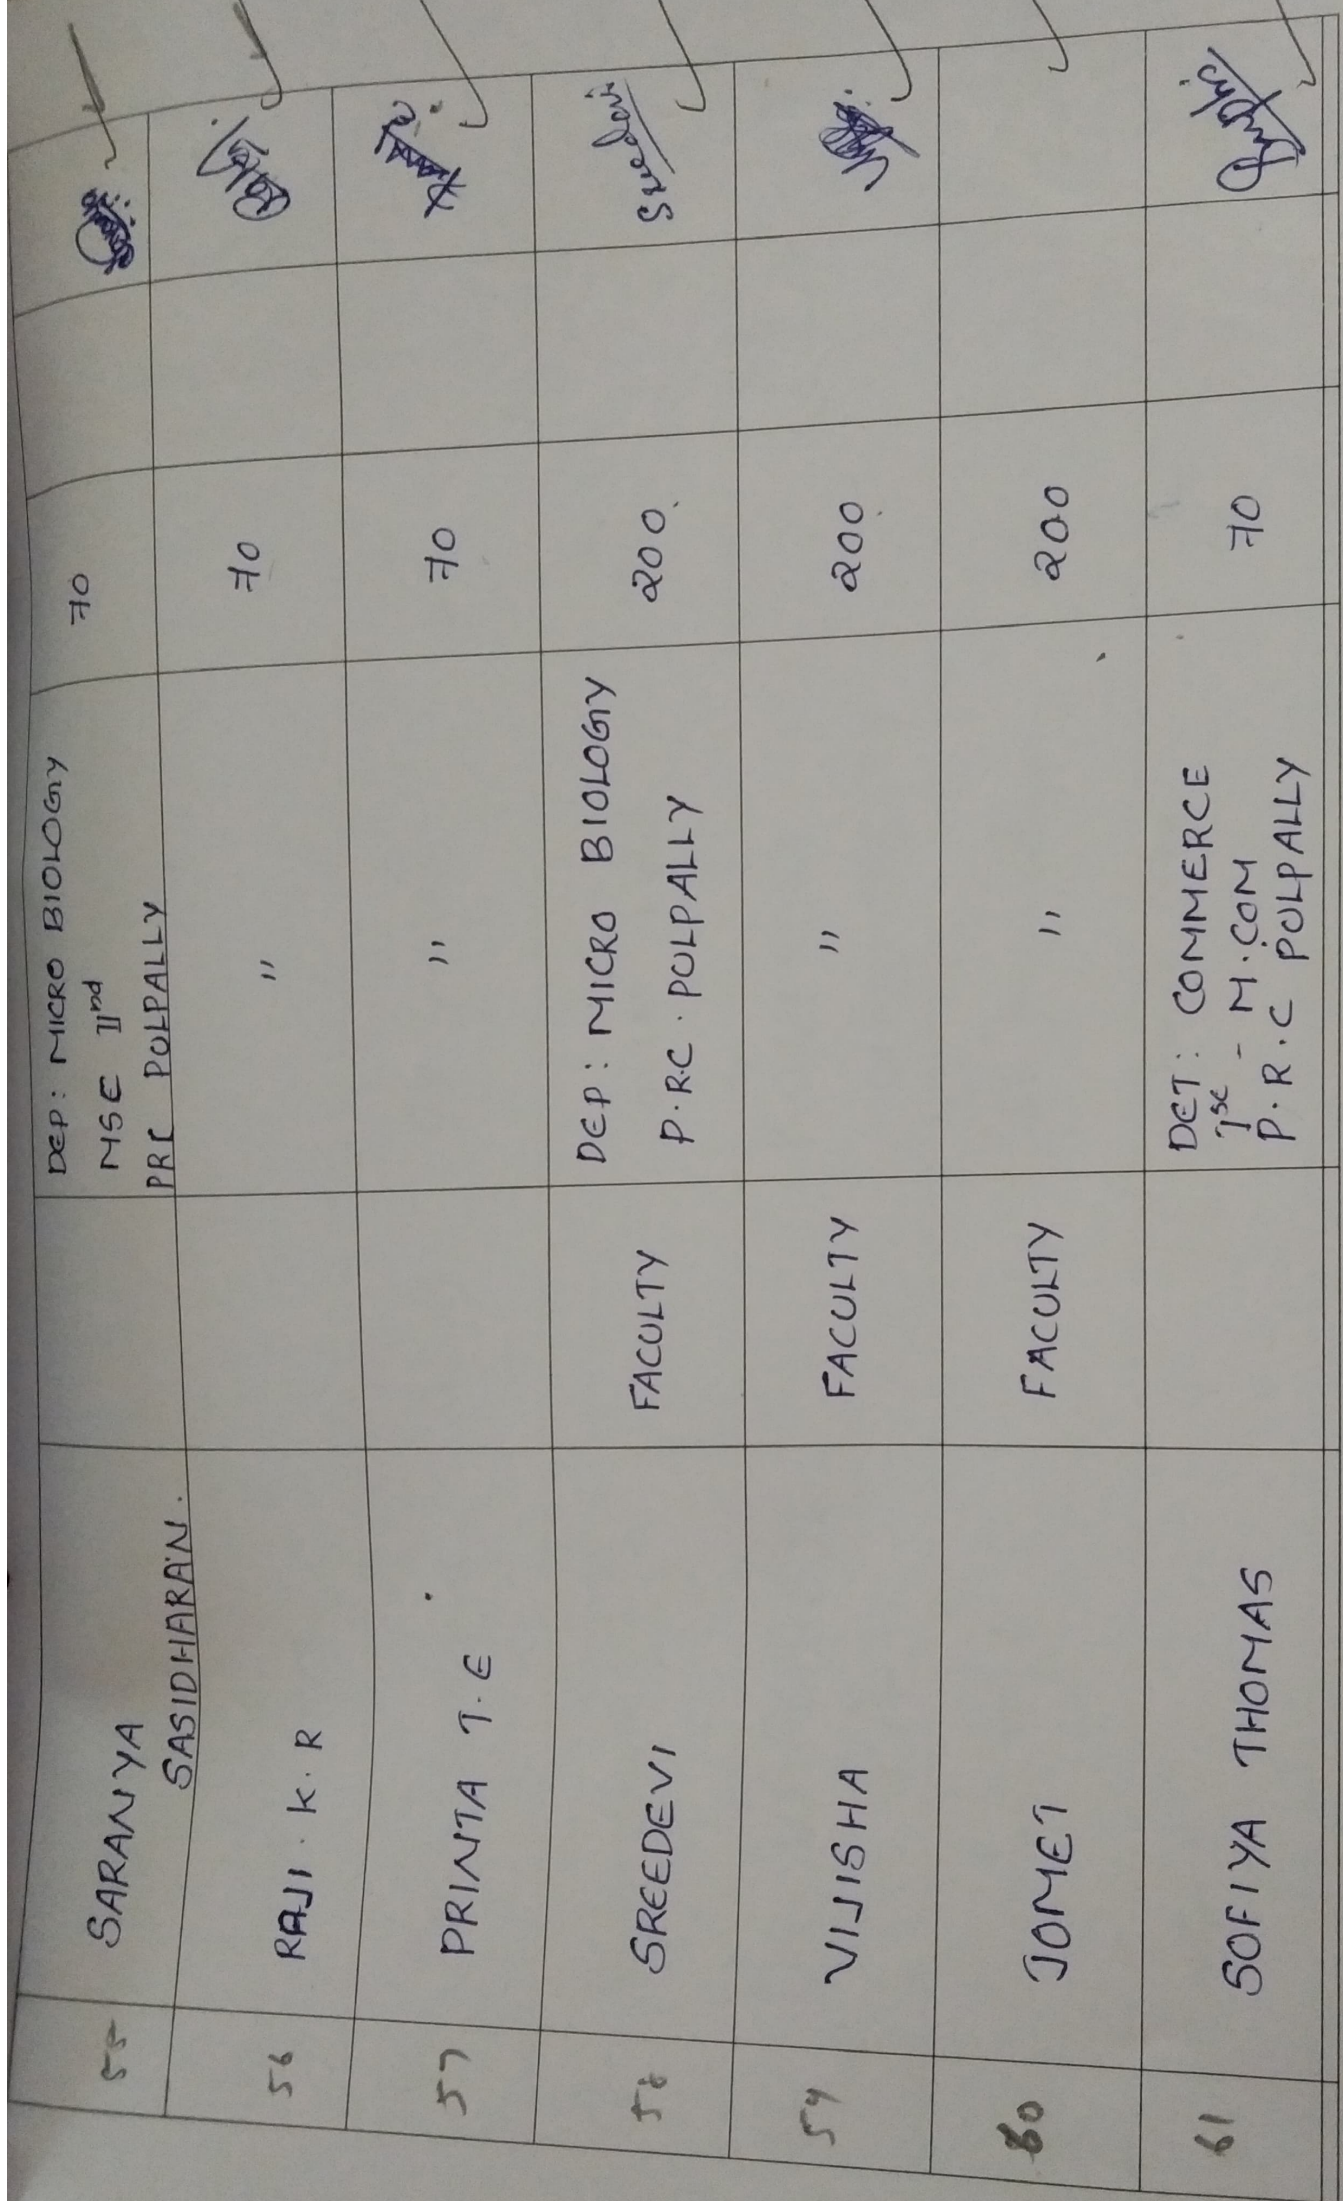 55 SARANYA SASIDHARAN. DEP : MICRO BIOLOGY MSC IInd PRC PULPALLY 70
56 RAJI . K . R " 70
57 PRINTA T. E " 70
58 SREEDEVI FACULTY DEP : MICRO BIOLOGY P.R.C. PULPALLY 200 Sreedevi
59 VIJISHA FACULTY " 200
60 JOMET FACULTY " 200
61 SOFIYA THOMAS DET : COMMERCE Ist - M.COM P.R.C PULPALLY 70